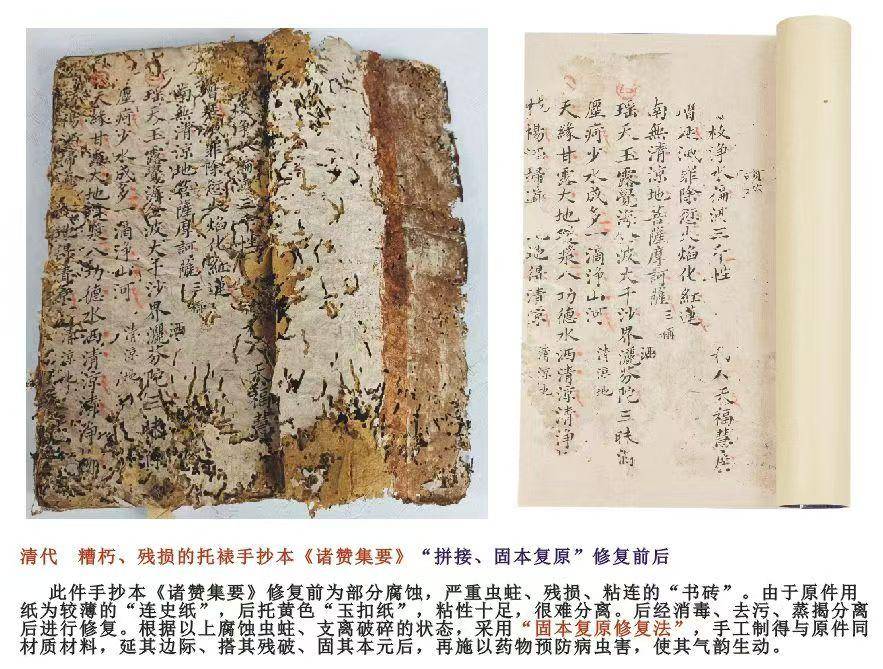 除愆火焰化紅蓮
南無清涼地菩薩摩訶薩
瑶天玉露覺海金波大千沙界灑芬陀三昧
少水成多一滴淨山河 清涼地
天緣甘露大地八功德水洒清涼清淨
地得清涼 清涼
枝淨水三千性 人天福慧
滅罪除愆火焰化紅蓮
南無清涼地菩薩摩訶薩 三稱 洒
瑶天玉露覺海波大千沙界灑芬陀三昧
少水成多一滴淨山河 清涼地
天緣甘露大地漿八功德水洒清涼清淨
楊 地得清涼 清涼
清代 糟朽、残损的托裱手抄本《诸赞集要》“拼接、固本复原”修复前后
此件手抄本《诸赞集要》修复前为部分腐蚀，严重虫蛀、残损、粘连的“书砖”。由于原件用
纸为较薄的“连史纸”，后托黄色“玉扣纸”，粘性十足，很难分离。后经消毒、去污、蒸揭分离
后进行修复。根据以上腐蚀虫蛀、支离破碎的状态，采用“固本复原修复法”，手工制得与原件同
材质材料，延其边际、搭其残破、固其本元后，再施以药物预防病虫害，使其气韵生动。